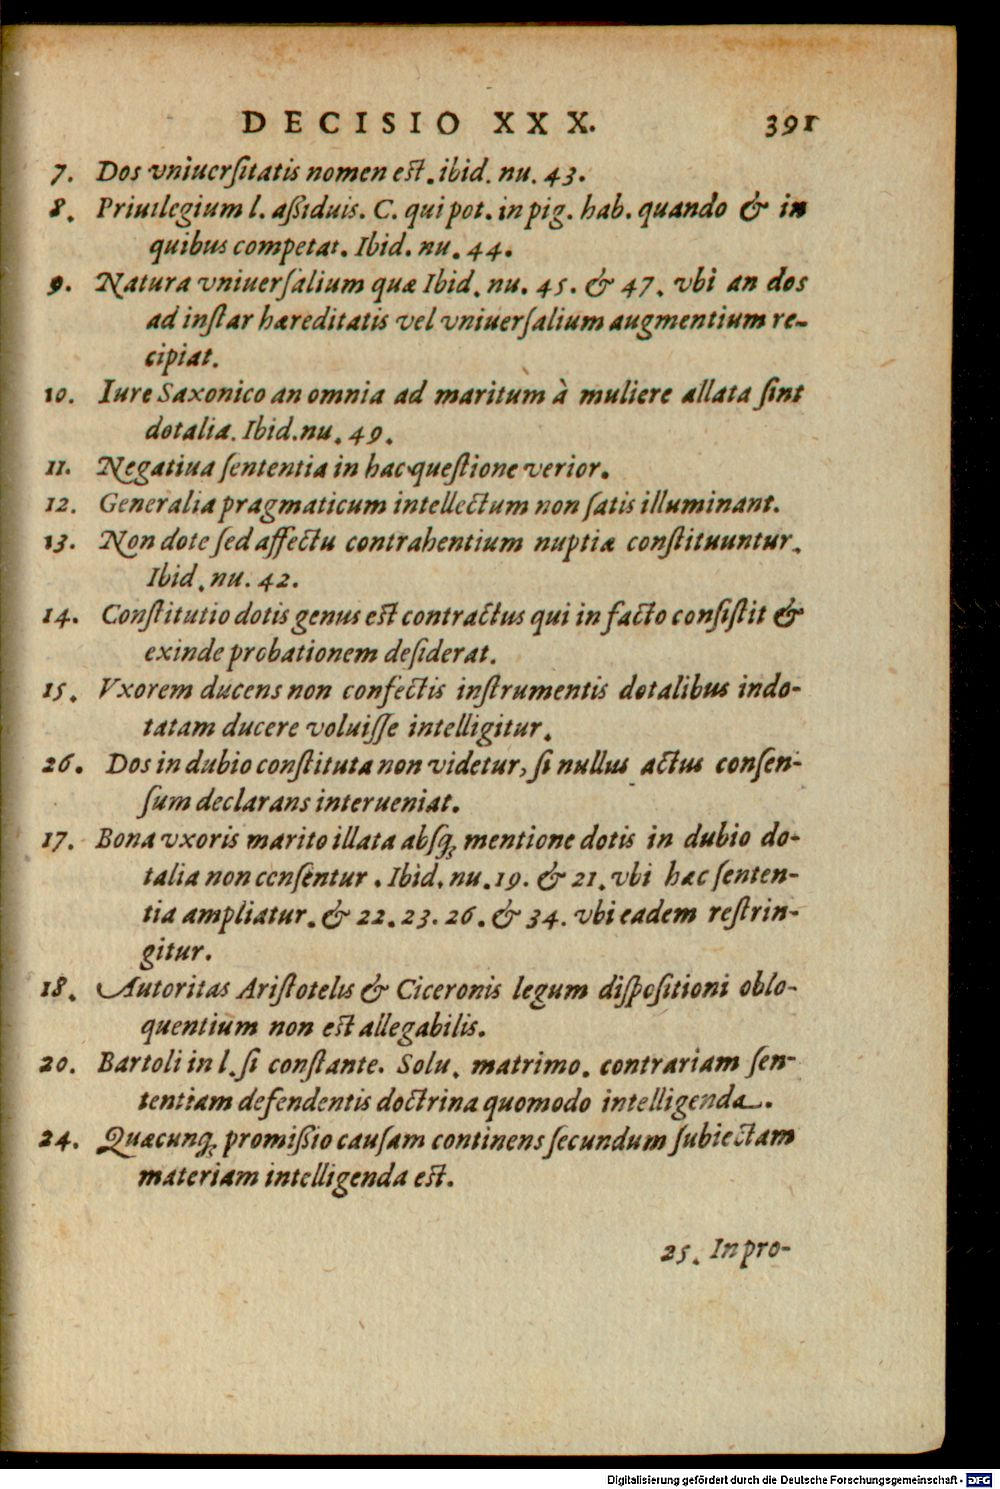 DECISIO XXX. 391
7. Dos vniuerſitatis nomen eſt. ibid. nu. 43.
8. Priuilegium l. aßiduis. C. qui pot. in pig. hab. quando & in
quibus competat. Ibid. nu. 44.
9. Natura vniuerſalium quæ Ibid. nu. 45. & 47. vbi an dos
ad inſtar hæreditatis vel vniuerſalium augmentium re-
cipiat.
10. Iure Saxonico an omnia ad maritum à muliere allata ſint
dotalia. Ibid. nu. 49.
11. Negatiua ſententia in hac queſtione verior.
12. Generalia pragmaticum intellectum non ſatis illuminant.
13. Non dote ſed affectu contrahentium nuptiæ conſtituuntur.
Ibid. nu. 42.
14. Conſtitutio dotis genus eſt contractus qui in facto conſiſtit &
exinde probationem deſiderat.
15. Vxorem ducens non confectis inſtrumentis dotalibus indo-
tatam ducere voluiſſe intelligitur.
26. Dos in dubio conſtituta non videtur, ſi nullus actus conſen-
ſum declarans interueniat.
17. Bona vxoris marito illata abſq; mentione dotis in dubio do-
talia non cenſentur. Ibid. nu. 19. & 21. vbi hæc ſenten-
tia ampliatur. & 22. 23. 26. & 34. vbi eadem reſtrin-
gitur.
18. Autoritas Ariſtotelis & Ciceronis legum diſpoſitioni oblo-
quentium non eſt allegabilis.
20. Bartoli in l. ſi conſtante. Solu. matrimo. contrariam ſen-
tentiam defendentis doctrina quomodo intelligenda.
24. Quæcunq; promißio cauſam continens ſecundum ſubiectam
materiam intelligenda eſt.
25. In pro-
Digitalisierung gefördert durch die Deutsche Forschungsgemeinschaft - DFG